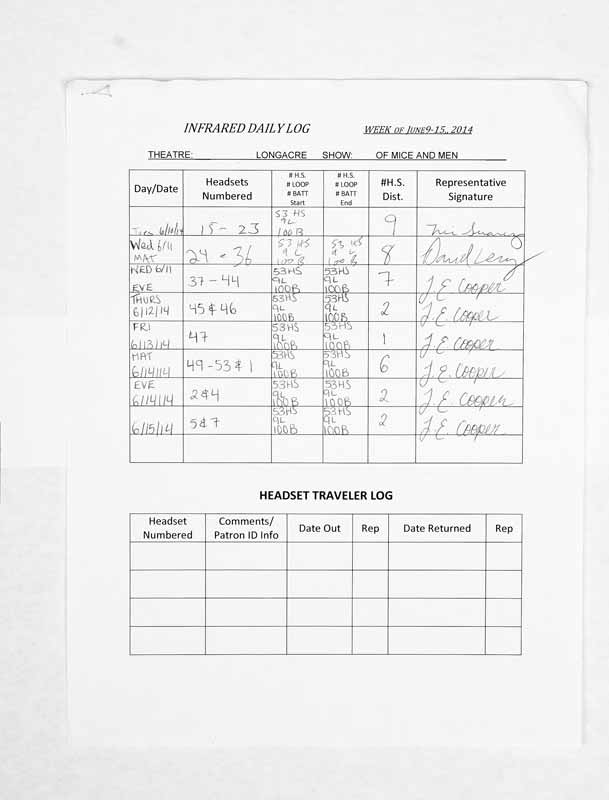 INFRARED DAILY LOG WEEK OF JUNE9-15, 2014
THEATRE: LONGACRE SHOW: OF MICE AND MEN
Day/Date Headsets Numbered # H.S. # LOOP # BATT Start # H.S. # LOOP # BATT End #H.S. Dist. Representative Signature
Tues 6/10/14 15 - 23 53 HS 9L 100B 9
Wed 6/11 MAT 24 - 36 53 HS 9 L 100 B 53 HS 9 L 100 B 8 David
WED 6/11 EVE 37 - 44 53HS 9L 100B 53HS 9L 100B 7 J.E Cooper
THURS 6/12/14 45 & 46 53HS 9L 100B 53HS 9L 100B 2 J.E. Cooper
FRI 6/13/14 47 53HS 9L 100B 53HS 9L 100B 1 J.E. Cooper
MAT 6/14/14 49-53 & 1 53HS 9L 100B 53HS 9L 100B 6 J.E. Cooper
EVE 6/14/14 2 & 4 53HS 9L 100B 53HS 9L 100B 2 J.E. Cooper
6/15/14 5 & 7 53HS 9L 100B 53HS 9L 100B 2 J.E. Cooper
HEADSET TRAVELER LOG
Headset Numbered Comments/ Patron ID Info Date Out Rep Date Returned Rep